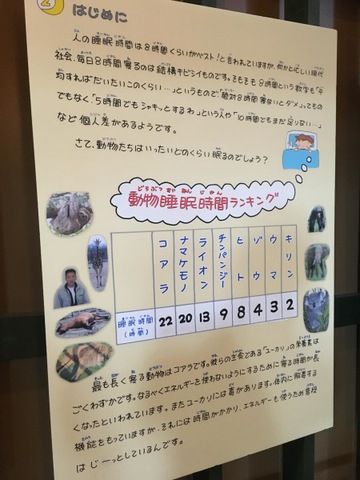 2 はじめに
人の睡眠時間は8時間くらいがベスト！と言われていますが、何かと忙しい現代
社会、毎日8時間寝るのは結構キビシイものです。そもそも8時間という数字も「平
均すればだいたいこのくらい…」というもので「絶対8時間寝ないとダメ。」っても
のでもなく「5時間でもシャキッとするわ。」という人や「10時間でもまだ足りない…」
など個人差があるようです。
さて、動物たちはいったいどのくらい眠るのでしょう？
動物睡眠時間ランキング
コアラ ナマケモノ ライオン チンパンジー ゾウ ウマ キリン
睡眠時間(時間) 22 20 13 9 8 4 3 2
最も長く寝る動物はコアラです。彼らの主食である「ユーカリ」の栄養素は
ごくわずかです。なるべくエネルギーを使わないようにするために寝る時間が長
くなったといわれています。またユーカリには毒があります。体内に解毒する
機能をもっていますが、それには時間がかかり、エネルギーも使うため普段
はじーっとしているんです。